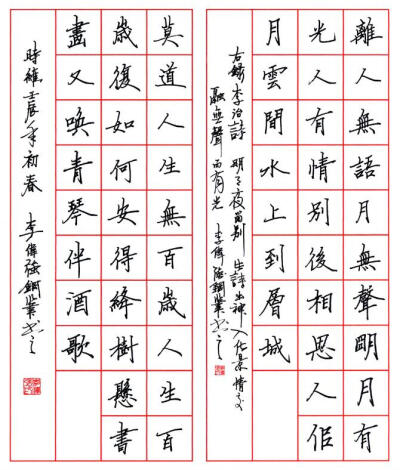 離人無語月無聲明月有
光人有情別後相思人佀
月雲間水上到層城
右錄李治詩 明月夜留別 此詩出神入化景情交
融無聲而有光 李偉強鋼筆書之
莫道人生無百歲人生百
歲復如何安得絳樹懸書
盡又喚青琴伴酒歌
時維壬辰年初春 李偉強鋼筆書之